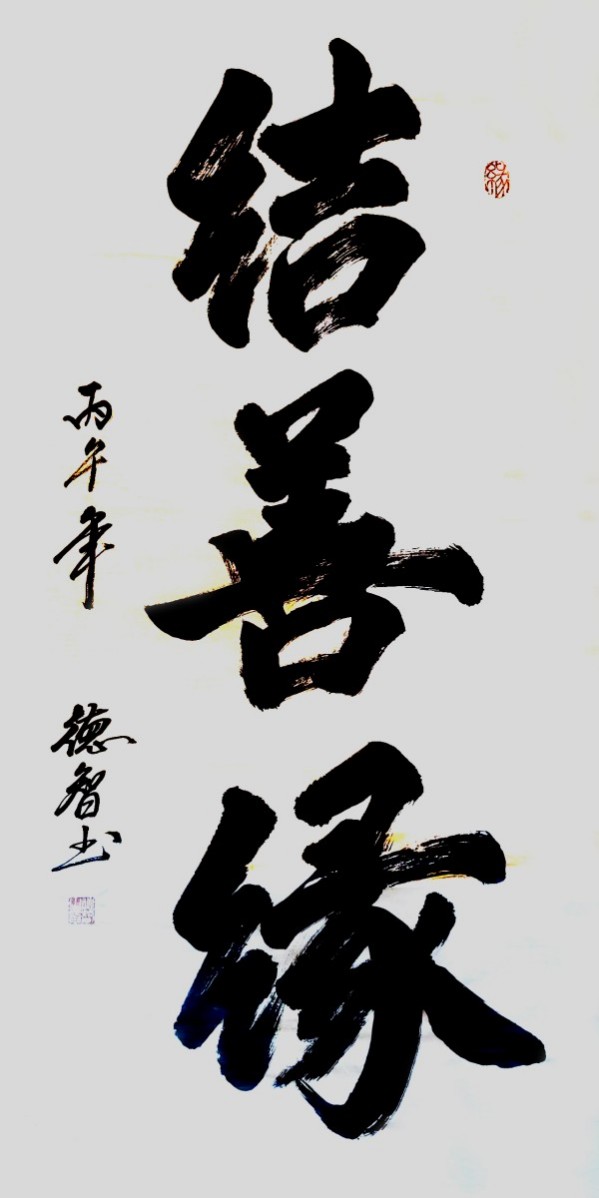 结善缘
丙午年
德智书